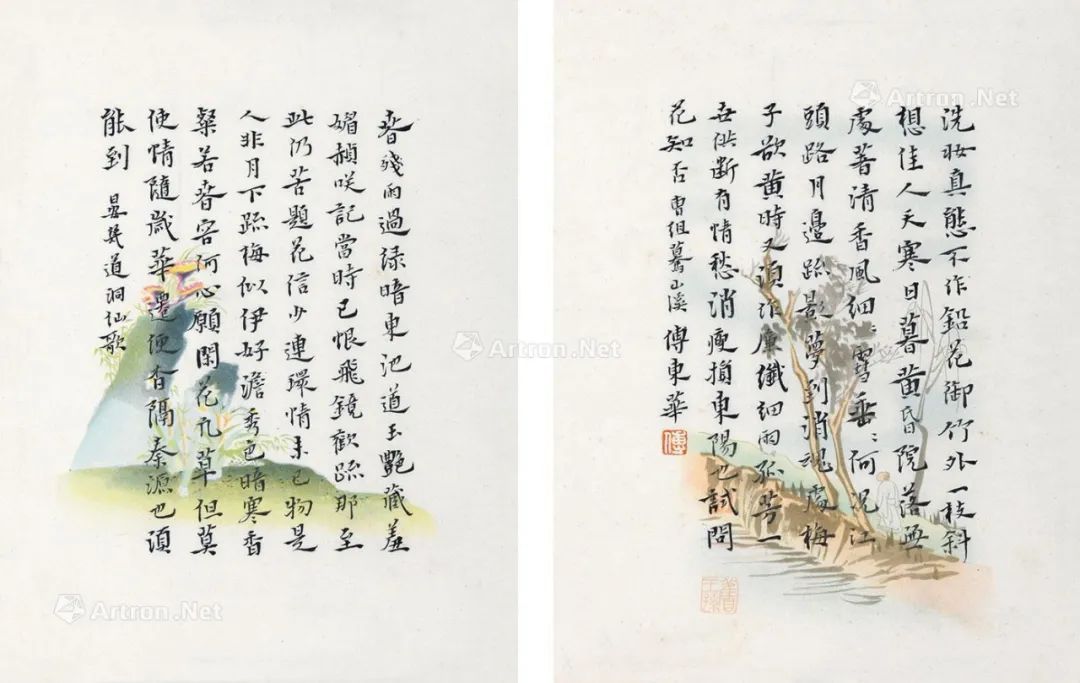 洗妝真態不作鉛花御竹外一枝斜
想佳人天寒日暮黃昏院落無
處著清香風細〻雪垂〻何況江
頭路月邊踈影夢到消魂處梅
子欲黃時又須作廉纖細雨孤芳一
世供斷有情愁消瘦損東陽也試問
花知否 曹組驀山溪 傅東華
傅
春殘雨過綠暗東池道玉艷藏羞
媚赬咲記當時已恨飛鏡歡踈那至
此仍苦題花信少連環情未已物是
人非月下踈梅似伊好澹秀色暗寒香
粲若春容何心願閑花凡草但莫
使情隨歲華遷便杳隔秦源也須
能到 晏幾道洞仙歌
Artron.Net
Artron.Net
Artron.Net
Artron.Net